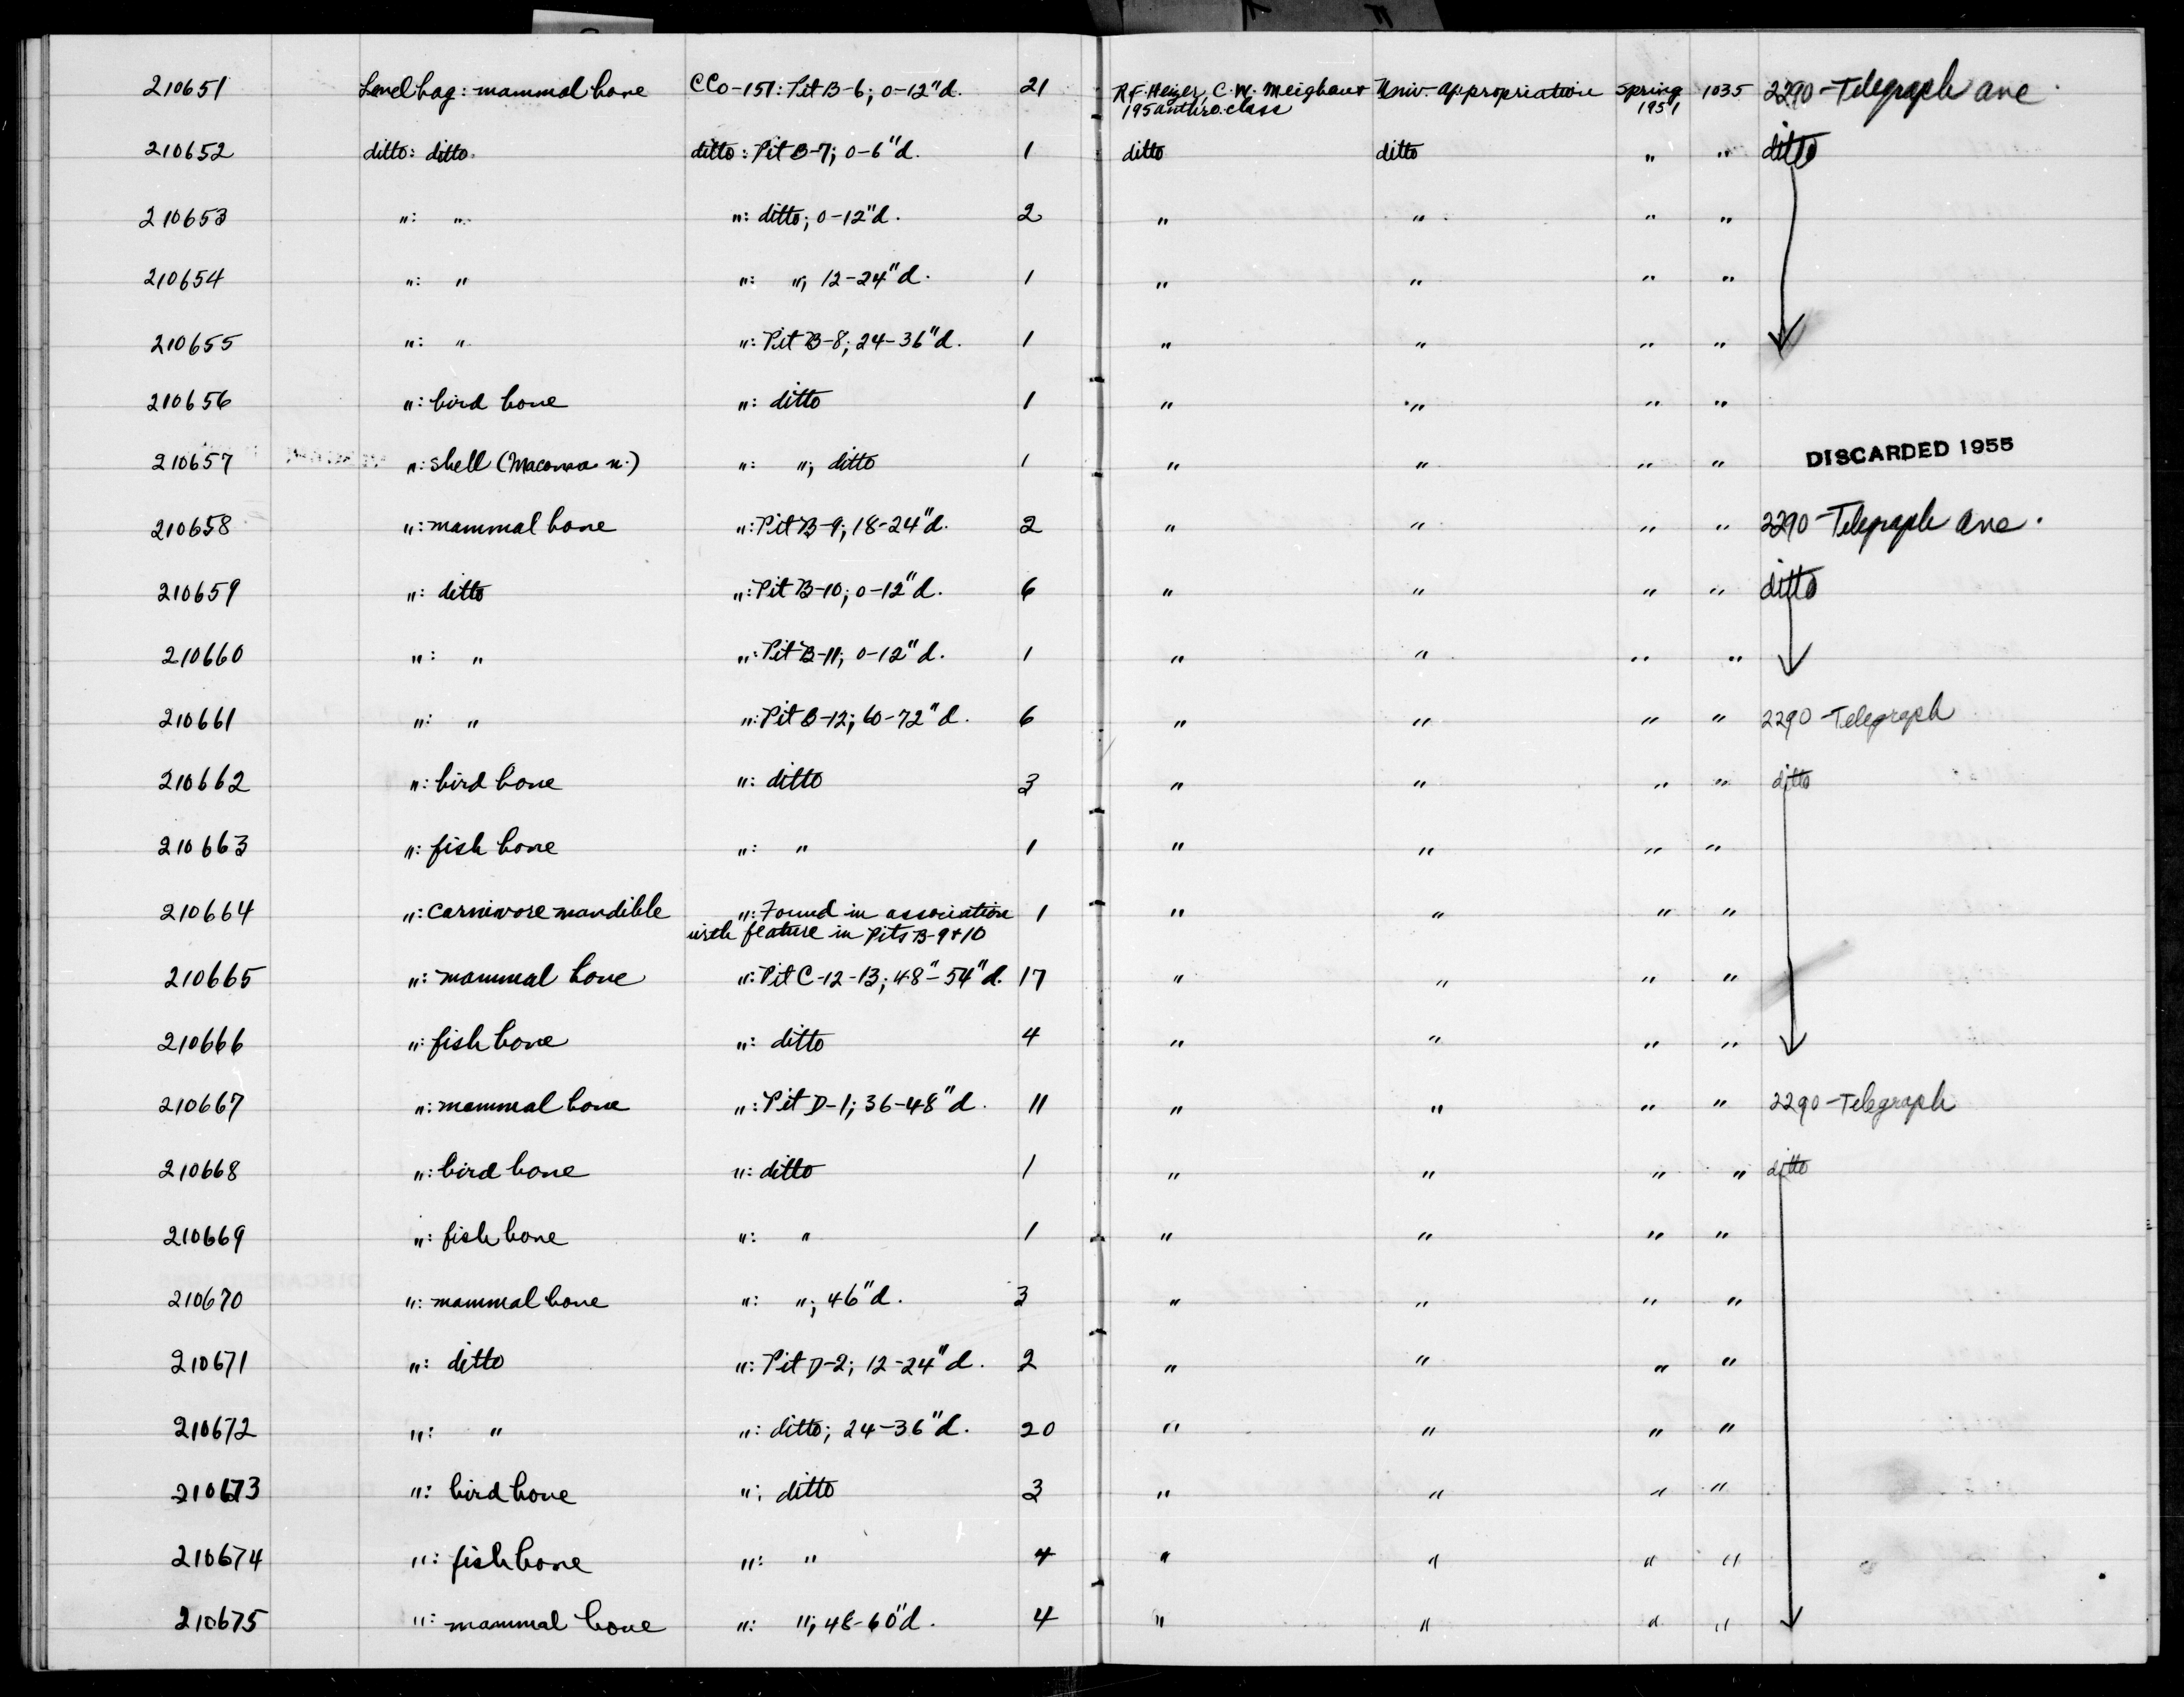 210651 Level bag: mammal bone CCo-151: Pit B-6; 0-12"d. 21 R.F. Heizer, C.W. Meighan & Univ. Appropriation Spring 1035 2290-Telegraph ave.
195 anthro. class 1951
210652 ditto: ditto. ditto: Pit B-7; 0-6"d. 1 ditto ditto " " ditto
210653 ": " ": ditto; 0-12"d. 2 " " " "
210654 ": " ": "; 12-24"d. 1 " " " "
210655 ": " ": Pit B-8; 24-36"d. 1 " " " "
210656 ": bird bone ": ditto 1 " " " "
210657 ": shell (Macoma n.) ": "; ditto 1 " " " " DISCARDED 1955
210658 ": mammal bone ": Pit B-9; 18-24"d. 2 " " " " 2290-Telegraph ave.
210659 ": ditto ": Pit B-10; 0-12"d. 6 " " " " ditto
210660 ": " ": Pit B-11; 0-12"d. 1 " " " "
210661 ": " ": Pit B-12; 60-72"d. 6 " " " " 2290-Telegraph
210662 ": bird bone ": ditto 3 " " " " ditto
210663 ": fish bone ": " 1 " " " "
210664 ": carnivore mandible ": Found in association 1 " " " "
with feature in Pits B-9+10
210665 ": mammal bone ": Pit C-12-13; 48"-54"d. 17 " " " "
210666 ": fish bone ": ditto 4 " " " "
210667 ": mammal bone ": Pit D-1; 36-48"d. 11 " " " " 2290-Telegraph
210668 ": bird bone ": ditto 1 " " " " ditto
210669 ": fish bone ": " 1 " " " "
210670 ": mammal bone ": "; 46"d. 3 " " " "
210671 ": ditto ": Pit D-2; 12-24"d. 2 " " " "
210672 ": " ": ditto; 24-36"d. 20 " " " "
210673 ": bird bone "; ditto 3 " " " "
210674 ": fish bone ": " 4 " " " "
210675 ": mammal bone ": "; 48-60"d. 4 " " " "